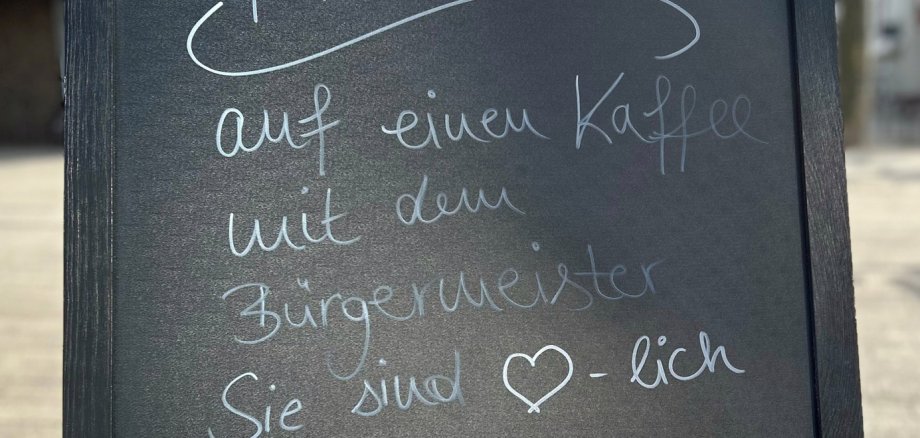 auf einen Kaffee
mit dem
Bürgermeister
Sie sind ♡-lich